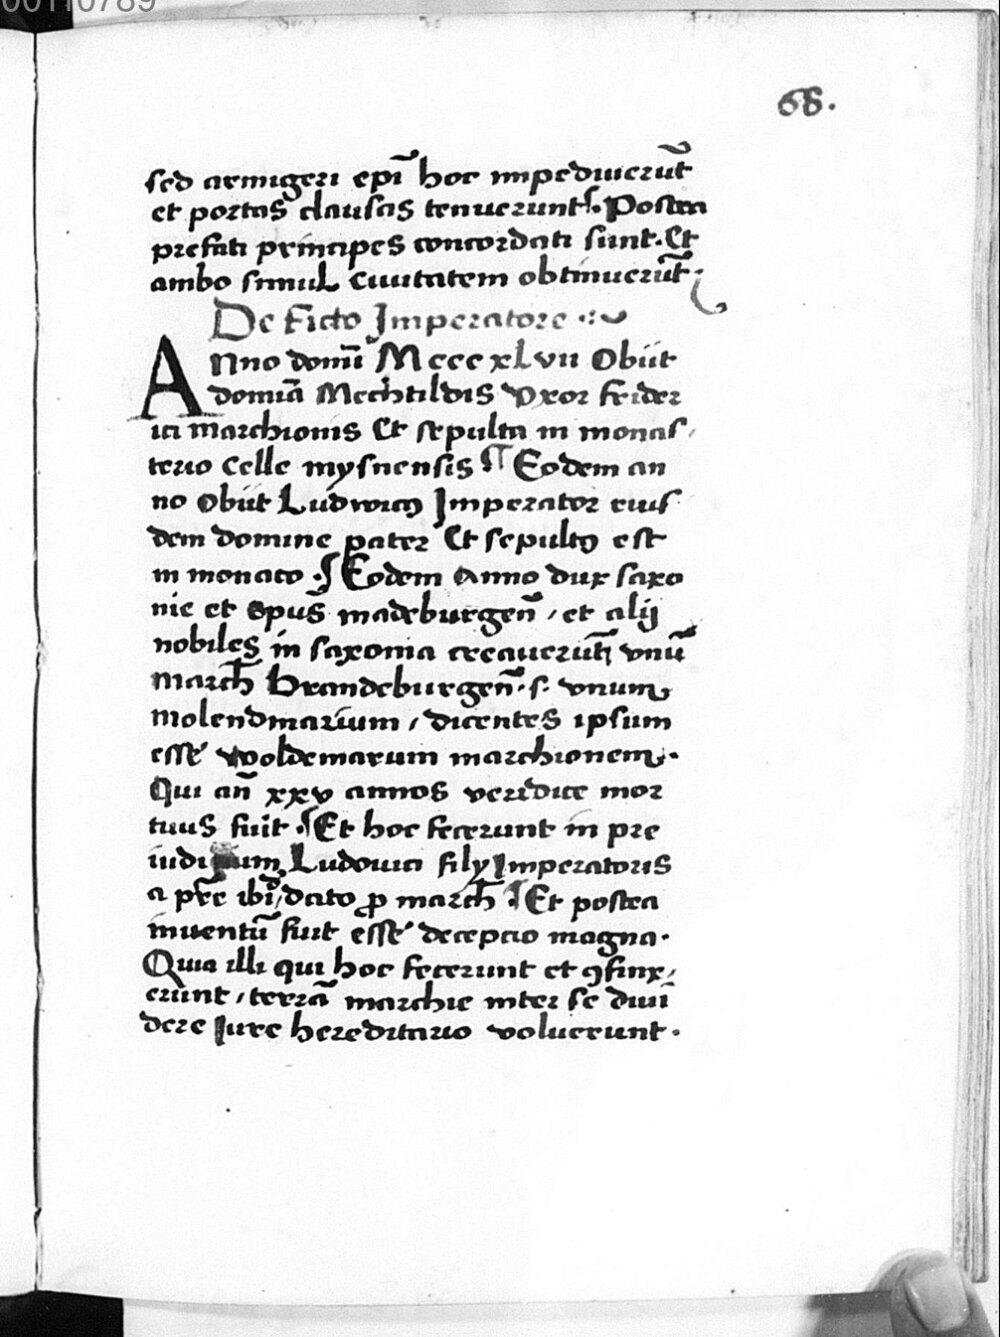 68.
sed armigeri epī hoc impediuerūt
et portas clausas tenuerunt. Postea
prefati principes concordati sunt. Et
ambo simul Ciuitatem obtinuerūt.
De Ficto Imperatore
Anno domīi Mccc xLvii Obiit
domīa Mechtildis Vxor frider
ici marchionis Et sepulta in monas,
terio Celle mysnensis ¶ Eodem an
no Obiit Ludwicꝯ Imperator eius
dem domine pater Et sepultꝯ est
in monaco. ¶ Eodem Anno dux saxo
nie et Epūs madeburgen̄, et alij
nobiles in saxonia creauerūt vnū
march̄ Brandeburgen̄ .s. vnum
molendinarium, dicentes ipsum
esse woldemarum marchionem.
Qui an̄ xxv annos veridice mor
tuus fuit. ¶ Et hoc fecerunt in pre
iudicium Ludouici filij Imperatoris
a pr̄e ibi dato ꝓ march̄ ¶ Et postea
inuentū fuit esse decepcio magna.
Quia illi qui hoc fecerunt et ꝯfinx,
erunt, terrā marchie inter se diui
dere Iure hereditario voluerunt.